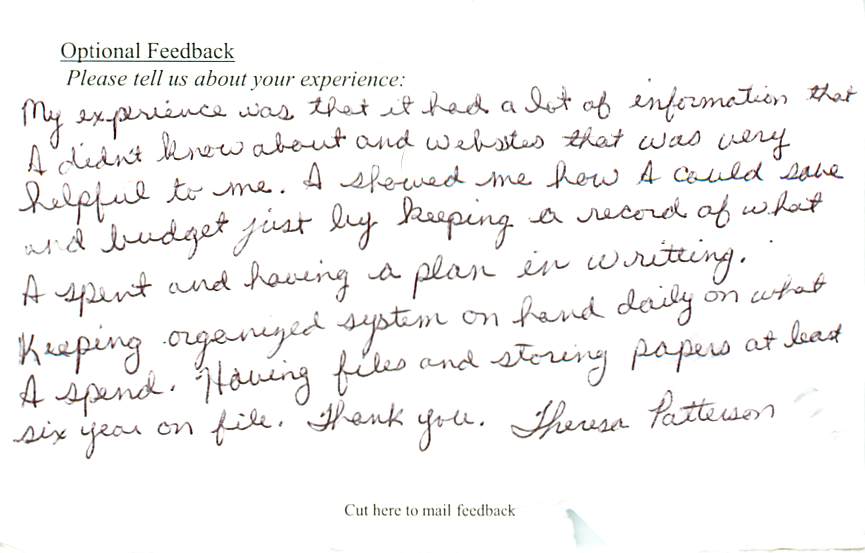 Optional Feedback
Please tell us about your experience:
My experience was that it had a lot of information that
I didn't know about and websites that was very
helpful to me. I showed me how I could save
and budget just by keeping a record of what
I spent and having a plan in writting.
Keeping organized system on hand daily on what
I spend. Having files and storing papers at least
six year on file. Thank you. Theresa Patterson
Cut here to mail feedback